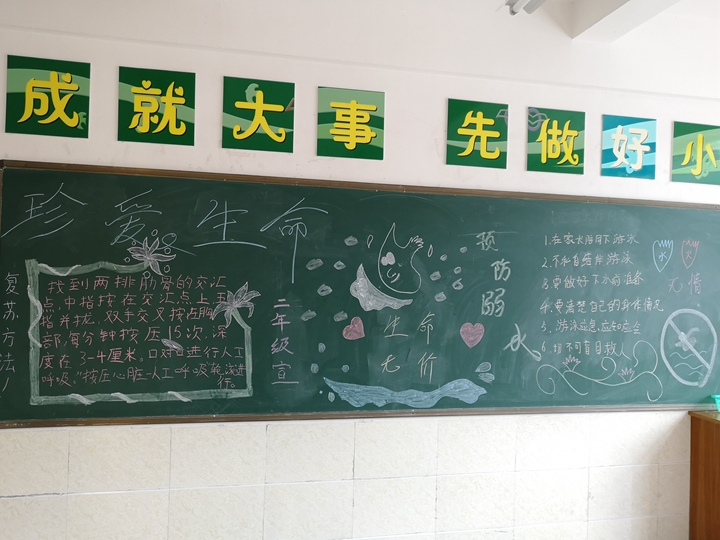 成就大事 先做好小
珍爱生命
复苏方法
找到两排肋骨的交汇
点,中指按在交汇点上五
指并拢,双手交叉按住胸
部,每分钟按压15次,深
度在3-4厘米。口对口进行人工
呼吸。"按压心脏-人工呼吸轮流进
行。
二年级宣
生命
无价
预防溺水
1.在家长陪同下游泳
2.不私自结伴游泳
3.要做好下水前准备
4.要清楚自己的身体情况
5.游泳应急,应知应会
6.切不可盲目救人
水 火
无情